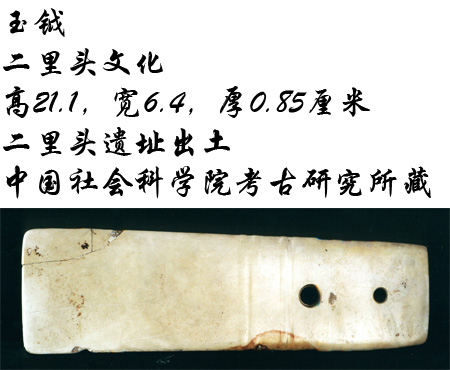 玉钺
二里头文化
高21.1，宽6.4，厚0.85厘米
二里头遗址出土
中国社会科学院考古研究所藏